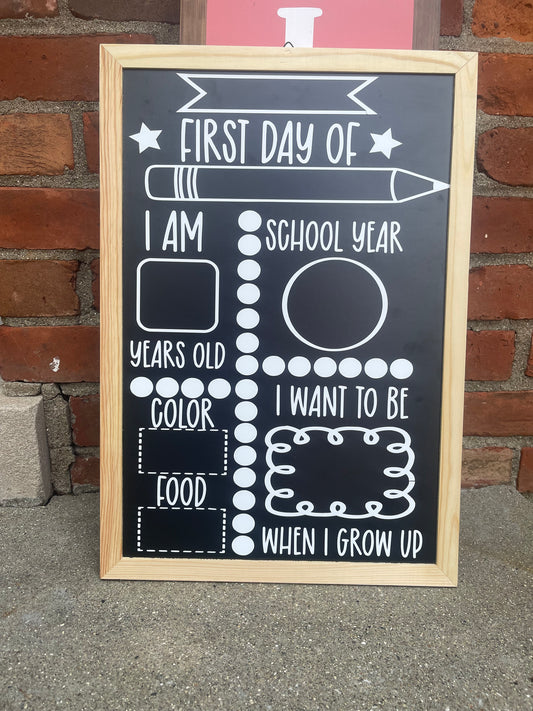 FIRST DAY OF
I AM
SCHOOL YEAR
YEARS OLD
I WANT TO BE
COLOR
FOOD
WHEN I GROW UP